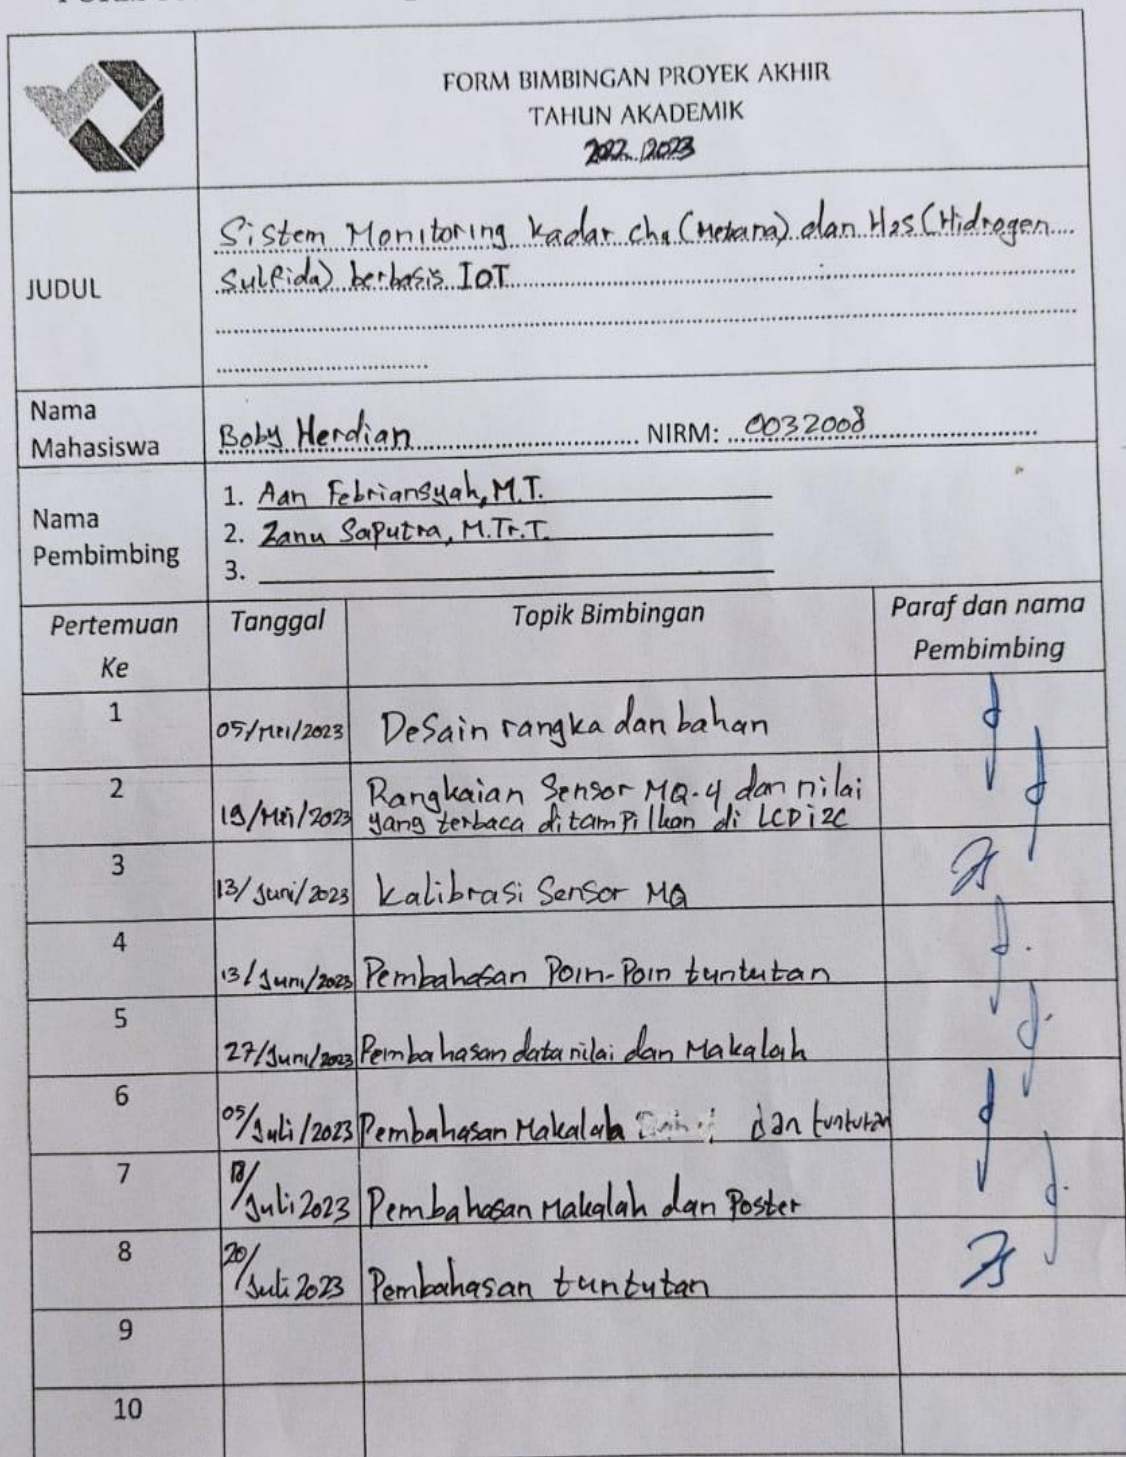 FORM BIMBINGAN PROYEK AKHIR
TAHUN AKADEMIK
2022/2023
JUDUL
Sistem Monitoring kadar ch4 (Metana) dan H2s (Hidrogen
Sulfida) berbasis IoT
Nama
Mahasiswa
Boby Herdian NIRM: 0032008
Nama
Pembimbing
1. Aan Febriansyah, M.T.
2. Zanu Saputra, M.Tr.T.
3.
Pertemuan
Ke
Tanggal
Topik Bimbingan
Paraf dan nama
Pembimbing
1
05/Mei/2023
Desain rangka dan bahan
2
19/Mei/2023
Rangkaian Sensor MQ-4 dan nilai
yang terbaca ditampilkan di LCD i2C
3
13/Juni/2023
Kalibrasi Sensor MQ
4
13/Juni/2023
Pembahasan Poin-Poin tuntutan
5
27/Juni/2023
Pembahasan data nilai dan Makalah
6
05/Juli/2023
Pembahasan Makalah dan tuntutan
7
18/Juli 2023
Pembahasan Makalah dan Poster
8
20/Juli 2023
Pembahasan tuntutan
9
10